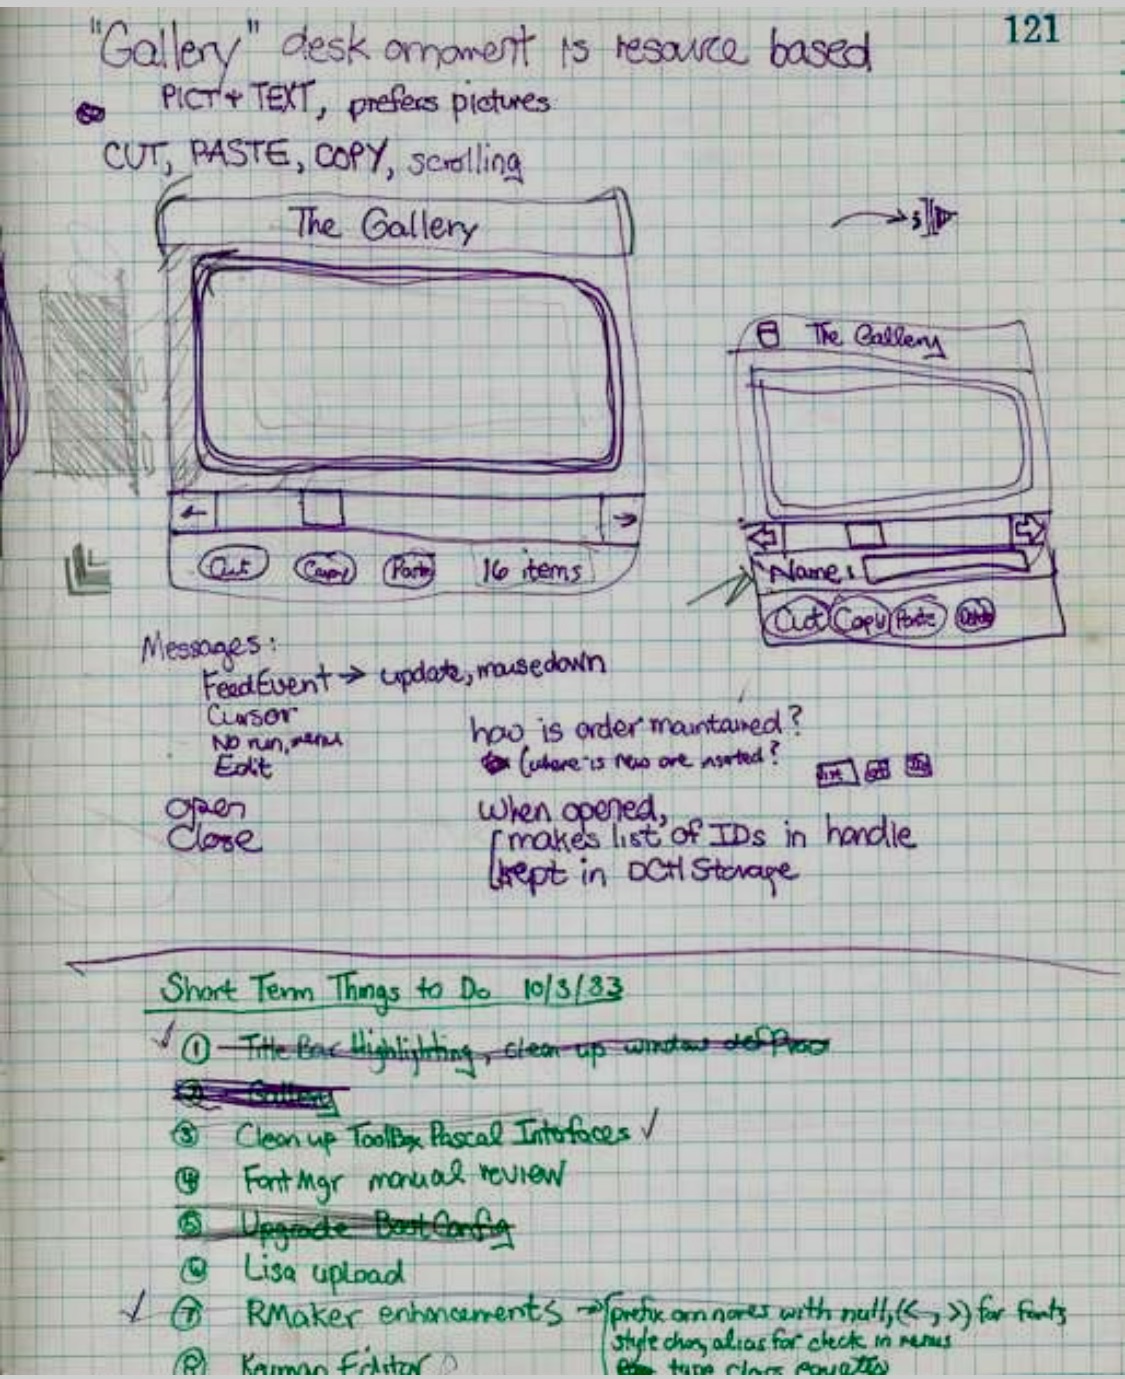 121
"Gallery" desk ornament is resource based
PICT + TEXT, prefers pictures
CUT, PASTE, COPY, scrolling
The Gallery
← →
Cut Copy Paste 16 items
The Gallery
Name:
Cut Copy Paste
Messages:
FeedEvent → update, mousedown
Cursor
No run, menu
Edit
open
Close
how is order maintained?
(where is new one inserted?
When opened,
makes list of IDs in handle
kept in DCtlStorage
Short Term Things to Do 10/3/83
① Title Bar Highlighting, clean up window defProc
② Gallery
③ Clean up ToolBox Pascal Interfaces ✓
④ Font Mgr manual review
⑤ Upgrade Boot Config
⑥ Lisa upload
⑦ RMaker enhancements → prefix orn names with null, (<, >) for fonts
style char, alias for check in menus
type class
⑧ Keymap Editor